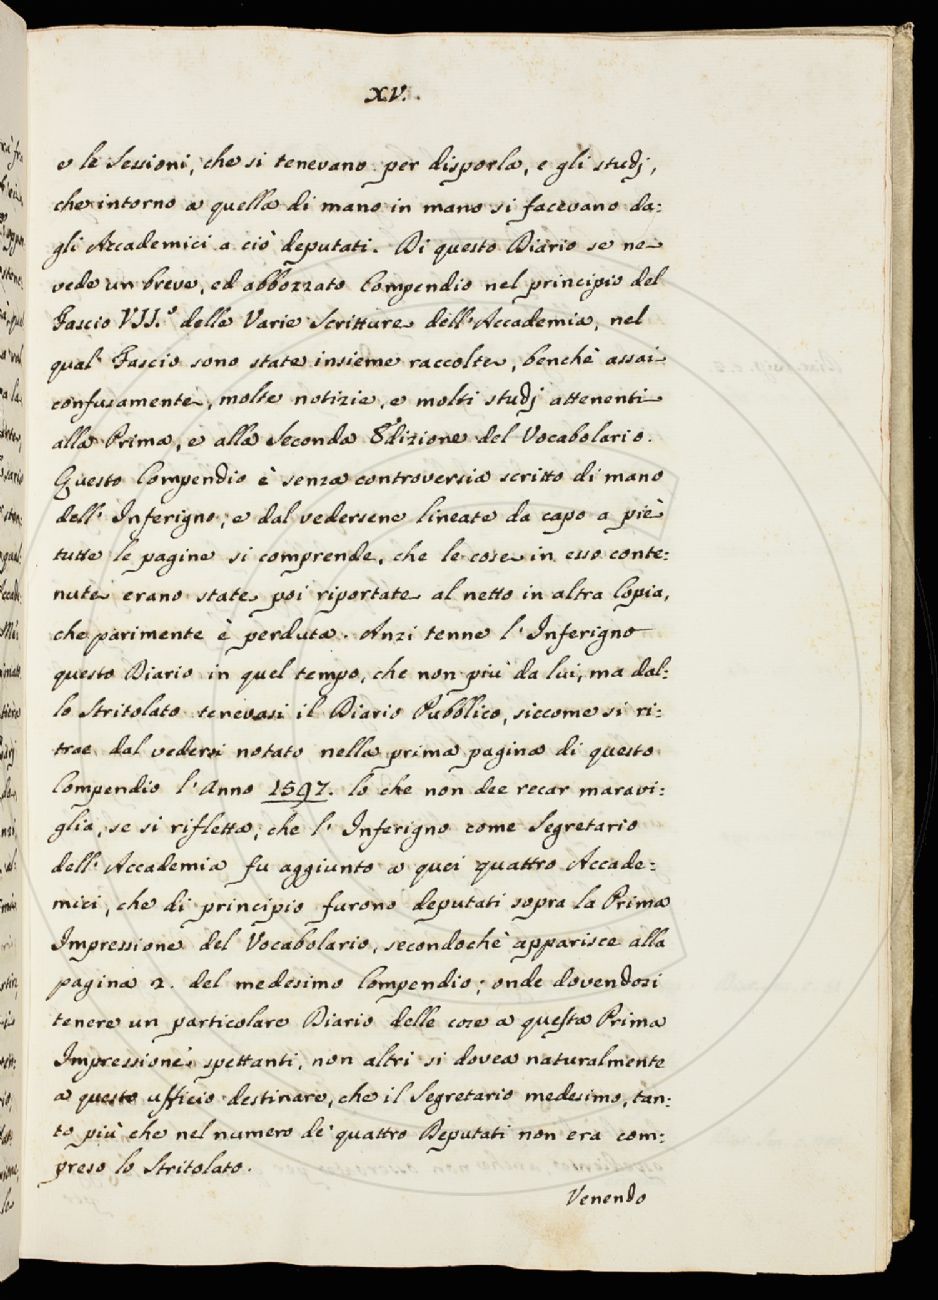 XV.
e le Sessioni, che si tenevano per disporla, e gli studj,
che intorno a quella di mano in mano si facevano da:
gli Accademici a ciò deputati. Di questo Diario se ne
vede un breve, ed abbozzato Compendio nel principio del
Fascio VII.º delle Varie Scritture dell'Accademia, nel
qual Fascio sono state insieme raccolte, benchè assai
confusamente, molte notizie, e molti studj attenenti
alla Prima, e alla Seconda Edizione del Vocabolario.
Questo Compendio è senza controversia scritto di mano
dell'Inferigno; e dal vedersene lineate da capo a piè
tutte le pagine si comprende, che le cose in esso conte:
nute erano state poi riportate al netto in altra Copia,
che parimente è perduta. Anzi tenne l'Inferigno
questo Diario in quel tempo, che non più da lui, ma dal:
lo Stritolato tenevasi il Diario Pubblico, siccome si ri:
trae dal vedersi notato nella prima pagina di questo
Compendio l'Anno 1597. lo che non dee recar maravi:
glia, se si rifletta, che l'Inferigno come Segretario
dell'Accademia fu aggiunto a quei quattro Accade:
mici, che di principio furono deputati sopra la Prima
Impressione del Vocabolario, secondochè apparisce alla
pagina 2. del medesimo Compendio; onde dovendosi
tenere un particolare Diario delle cose a questa Prima
Impressione spettanti, non altri si dovea naturalmente
a questo ufficio destinare, che il Segretario medesimo, tan:
to più che nel numero de' quattro Deputati non era com:
preso lo Stritolato.
Venendo